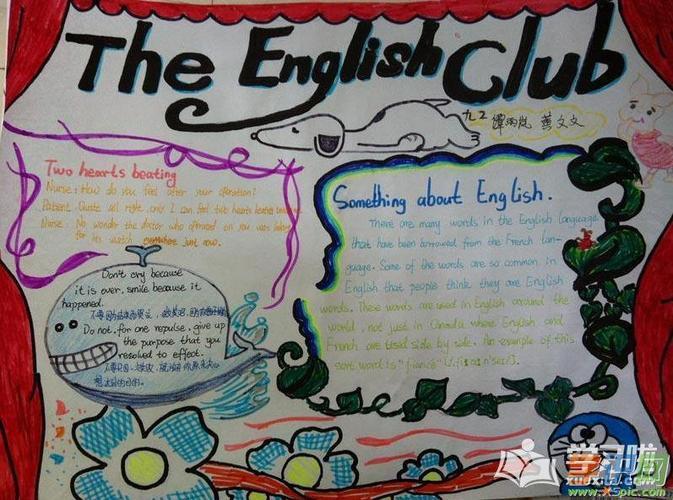 The English Club
九2 谭雨岚 黄文文
Two hearts beating
Nurse: How do you feel after your operation?
Patient: Quite all right, only I can feel two hearts beating
Nurse: No wonder the doctor who operated on you was
for his watch just now.
Don't cry because
it is over, smile because it
happened.
Do not, for one repulse, give up
the purpose that you
resolved to effect.
Something about English.
There are many words in the English language
that have been borrowed from the French lan-
guage. Some of the words are so common in
English that people think they are English
words. These words are used in English around the
world, not just in Canada where English and
French are used side by side. An example of this
sort word is "fiancé"
学习啦
xuexila.com
www.x5pic.com